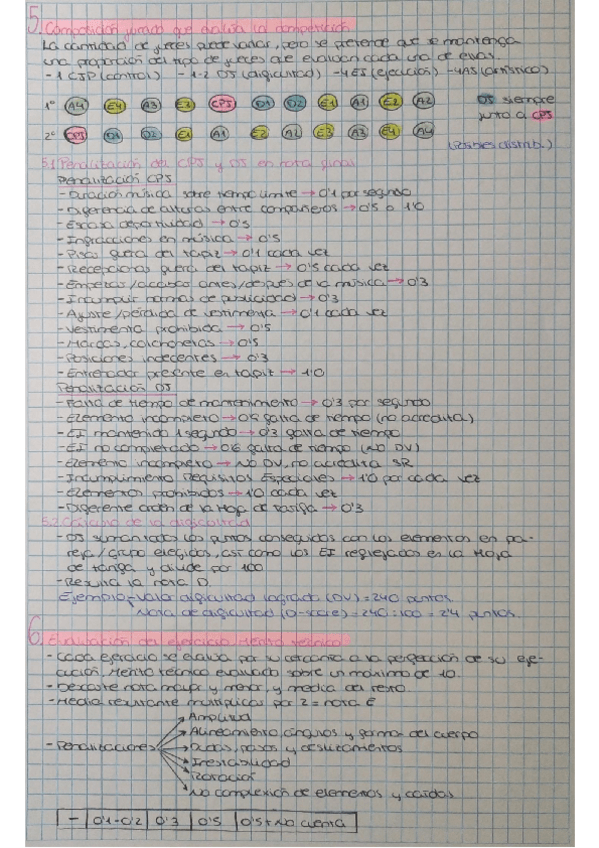 5. Composición jurado que evalúa la competición
La cantidad de jueces puede variar, pero se pretende que se mantenga
una proporción del tipo de jueces que evalúan cada una de ellas.
- 1 CJP (control) - 1-2 DJ (dificultad) - 4 EJ (ejecución) - 4 AJ (artístico)
1º A4 E4 A3 E3 CPJ D1 D2 E1 A1 E2 A2 DJ siempre
junto a CPJ
2º CPJ D1 D2 E1 A1 E2 A2 E3 A3 E4 A4
(Posibles distrib.)
5.1 Penalización del CPJ y DJ en nota final
Penalización CPJ
- Duración música sobre tiempo límite → 0'1 por segundo
- Diferencia de alturas entre compañeros → 0'5 o 1'0
- Escasa deportividad → 0'5
- Infracciones en música → 0'5
- Pisar fuera del tapiz → 0'1 cada vez
- Recepciones fuera del tapiz → 0'5 cada vez
- Empezar/acabar antes/después de la música → 0'3
- Incumplir normas de publicidad → 0'3
- Ajuste/pérdida de vestimenta → 0'1 cada vez
- Vestimenta prohibida → 0'5
- Marcas, colchonetas → 0'5
- Posiciones indecentes → 0'3
- Entrenador presente en tapiz → 1'0
Penalización DJ
- Falta de tiempo de mantenimiento → 0'3 por segundo
- Elemento incompleto → 0'6 falta de tiempo (no acredita)
- EI mantenido 1 segundo → 0'3 falta de tiempo
- EI no completado → 0'6 falta de tiempo (NO DV)
- Elemento incompleto → NO DV, no acredita SR
- Incumplimiento Requisitos Especiales → 1'0 por cada vez
- Elementos prohibidos → 1'0 cada vez
- Diferente orden de la Hoja de tarifa → 0'3
5.2 Cálculo de la dificultad
- DJ suman todos los puntos conseguidos con los elementos en pa-
reja/grupo elegidos, así como los EI reflejados en la Hoja
de tarifa y divide por 100
- Resulta la nota D.
Ejemplo: Valor dificultad logrado (DV) = 240 puntos.
Nota de dificultad (D-score) = 240:100 = 2'4 puntos.
6. Evaluación del ejercicio. Mérito técnico
- Cada ejercicio se evalúa por su cercanía a la perfección de su eje-
cución. Mérito técnico evaluado sobre un máximo de 10.
- Descarte nota mayor y menor, y media del resto.
- Media resultante multiplicas por 2 = nota E
- Penalizaciones
Amplitud
Alineamiento, ángulos y formas del cuerpo
Dudas, pasos y deslizamientos
Inestabilidad
Rotación
No compleción de elementos y caídas
- 0'1-0'2 0'3 0'5 0'5 + No cuenta